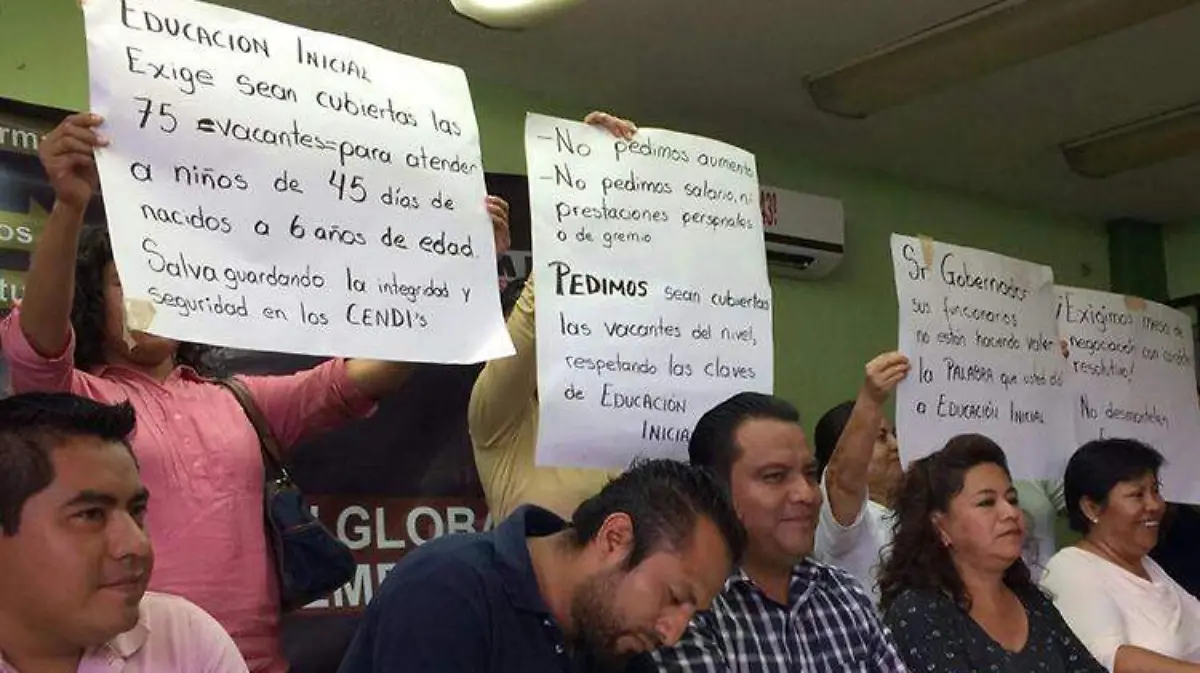 EDUCACION INICIAL
Exige sean cubiertas las
75 =vacantes= para atender
a niños de 45 días de
nacidos a 6 años de edad.
Salvaguardando la integridad y
seguridad en los CENDI's
-No pedimos aumento
-No pedimos salario, ni
prestaciones personales
o de gremio
PEDIMOS sean cubiertas
las vacantes del nivel,
respetando las claves
de EDUCACIÓN
INICIA
Sr Gobernador
sus funcionarios
no están haciendo valer
la PALABRA que usted dió
a EDUCACIÓN INICIAL
¡Exigimos mesa de
negociación con carácter
resolutivo!
No desmantelen
GLOBA
os